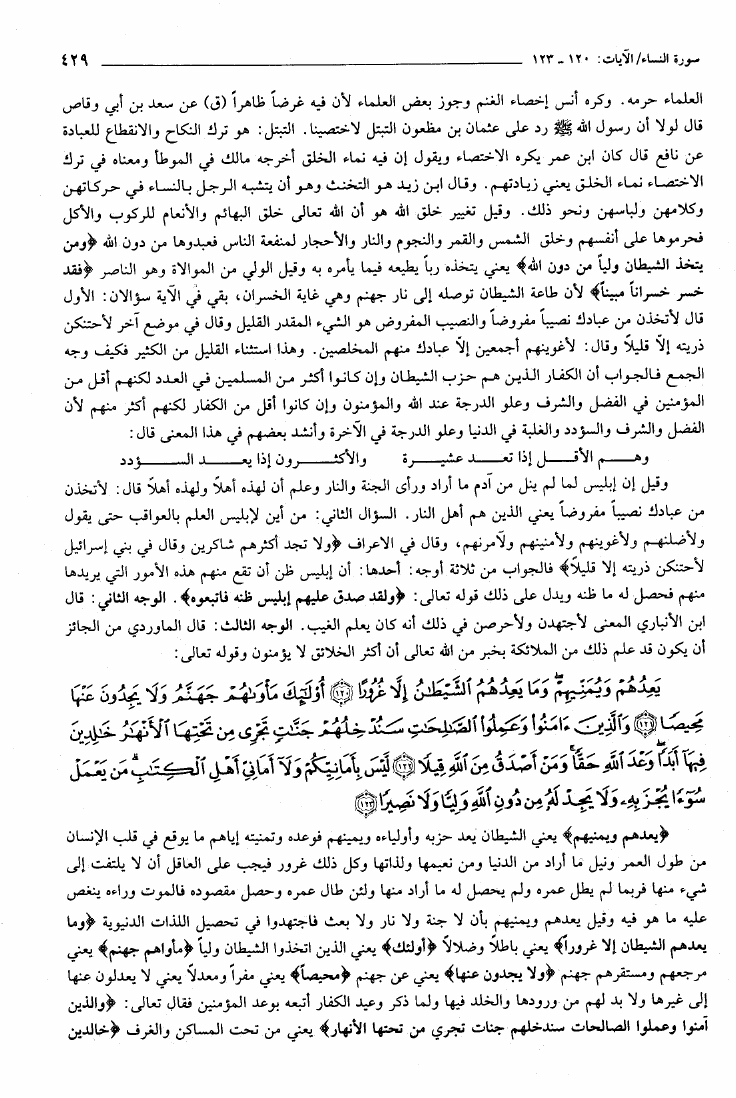 سورة النساء/ الآيات: ١٢٠ ـ ١٢٣ ٤٢٩
العلماء حرمه. وكره أنس إخصاء الغنم وجوز بعض العلماء لأن فيه غرضاً ظاهراً (ق) عن سعد بن أبي وقاص
قال لولا أن رسول الله ﷺ رد على عثمان بن مظعون التبتل لاختصينا. التبتل: هو ترك النكاح والانقطاع للعبادة
عن نافع قال كان ابن عمر يكره الاختصاء ويقول إن فيه نماء الخلق أخرجه مالك في الموطأ ومعناه في ترك
الاختصاء نماء الخلق يعني زيادتهم. وقال ابن زيد هو التخنث وهو أن يتشبه الرجل بالنساء في حركاتهن
وكلامهن ولباسهن ونحو ذلك. وقيل تغيير خلق الله هو أن الله تعالى خلق البهائم والأنعام للركوب والأكل
فحرموها على أنفسهم وخلق الشمس والقمر والنجوم والنار والأحجار لمنفعة الناس فعبدوها من دون الله ﴿ومن
يتخذ الشيطان ولياً من دون الله﴾ يعني يتخذه رباً يطيعه فيما يأمره به وقيل الولي من الموالاة وهو الناصر ﴿فقد
خسر خسراناً مبيناً﴾ لأن طاعة الشيطان توصله إلى نار جهنم وهي غاية الخسران، بقي في الآية سؤالان: الأول
قال لأتخذن من عبادك نصيباً مفروضاً والنصيب المفروض هو الشيء المقدر القليل وقال في موضع آخر لأحتنكن
ذريته إلّا قليلاً وقال: لأغوينهم أجمعين إلّا عبادك منهم المخلصين. وهذا استثناء القليل من الكثير فكيف وجه
الجمع فالجواب أن الكفار الذين هم حزب الشيطان وإن كانوا أكثر من المسلمين في العدد لكنهم أقل من
المؤمنين في الفضل والشرف وعلو الدرجة عند الله والمؤمنون وإن كانوا أقل من الكفار لكنهم أكثر منهم لأن
الفضل والشرف والسؤدد والغلبة في الدنيا وعلو الدرجة في الآخرة وأنشد بعضهم في هذا المعنى قال:
وهـم الأقـل إذا تعـد عشيـرة والأكثـرون إذا يعـد السـؤدد
وقيل إن إبليس لما لم ينل من آدم ما أراد ورأى الجنة والنار وعلم أن لهذه أهلاً ولهذه أهلاً قال: لأتخذن
من عبادك نصيباً مفروضاً يعني الذين هم أهل النار. السؤال الثاني: من أين لإبليس العلم بالعواقب حتى يقول
ولأضلنهم ولأغوينهم ولأمنينهم ولآمرنهم، وقال في الاعراف ﴿ولا تجد أكثرهم شاكرين وقال في بني إسرائيل
لأحتنكن ذريته إلا قليلاً﴾ فالجواب من ثلاثة أوجه: أحدها: أن إبليس ظن أن تقع منهم هذه الأمور التي يريدها
منهم فحصل له ما ظنه ويدل على ذلك قوله تعالى: ﴿ولقد صدق عليهم إبليس ظنه فاتبعوه﴾. الوجه الثاني: قال
ابن الأنباري المعنى لأجتهدن ولأحرصن في ذلك أنه كان يعلم الغيب. الوجه الثالث: قال الماوردي من الجائز
أن يكون قد علم ذلك من الملائكة بخبر من الله تعالى أن أكثر الخلائق لا يؤمنون وقوله تعالى:
يَعِدُهُمْ وَيُمَنِّيهِمْ وَمَا يَعِدُهُمُ ٱلشَّيْطَٰنُ إِلَّا غُرُورًا ١٢٠ أُوْلَٰٓئِكَ مَأْوَىٰهُمْ جَهَنَّمُ وَلَا يَجِدُونَ عَنْهَا
مَحِيصًا ١٢١ وَٱلَّذِينَ ءَامَنُوا۟ وَعَمِلُوا۟ ٱلصَّٰلِحَٰتِ سَنُدْخِلُهُمْ جَنَّٰتٍ تَجْرِى مِن تَحْتِهَا ٱلْأَنْهَٰرُ خَٰلِدِينَ
فِيهَآ أَبَدًا وَعْدَ ٱللَّهِ حَقًّا وَمَنْ أَصْدَقُ مِنَ ٱللَّهِ قِيلًا ١٢٢ لَّيْسَ بِأَمَانِيِّكُمْ وَلَآ أَمَانِىِّ أَهْلِ ٱلْكِتَٰبِ مَن يَعْمَلْ
سُوٓءًا يُجْزَ بِهِۦ وَلَا يَجِدْ لَهُۥ مِن دُونِ ٱللَّهِ وَلِيًّا وَلَا نَصِيرًا ١٢٣
﴿يعدهم ويمنيهم﴾ يعني الشيطان يعد حزبه وأولياءه ويمينهم فوعده وتمنيته إياهم ما يوقع في قلب الإنسان
من طول العمر ونيل ما أراد من الدنيا ومن نعيمها ولذاتها وكل ذلك غرور فيجب على العاقل أن لا يلتفت إلى
شيء منها فربما لم يطل عمره ولم يحصل له ما أراد منها ولئن طال عمره وحصل مقصوده فالموت وراءه ينغص
عليه ما هو فيه وقيل يعدهم ويمنيهم بأن لا جنة ولا نار ولا بعث فاجتهدوا في تحصيل اللذات الدنيوية ﴿وما
يعدهم الشيطان إلا غروراً﴾ يعني باطلاً وضلالاً ﴿أولئك﴾ يعني الذين اتخذوا الشيطان ولياً ﴿مأواهم جهنم﴾ يعني
مرجعهم ومستقرهم جهنم ﴿ولا يجدون عنها﴾ يعني عن جهنم ﴿محيصاً﴾ يعني مفراً ومعدلاً يعني لا يعدلون عنها
إلى غيرها ولا بد لهم من ورودها والخلد فيها ولما ذكر وعيد الكفار أتبعه بوعد المؤمنين فقال تعالى: ﴿والذين
آمنوا وعملوا الصالحات سندخلهم جنات تجري من تحتها الأنهار﴾ يعني من تحت المساكن والغرف ﴿خالدين